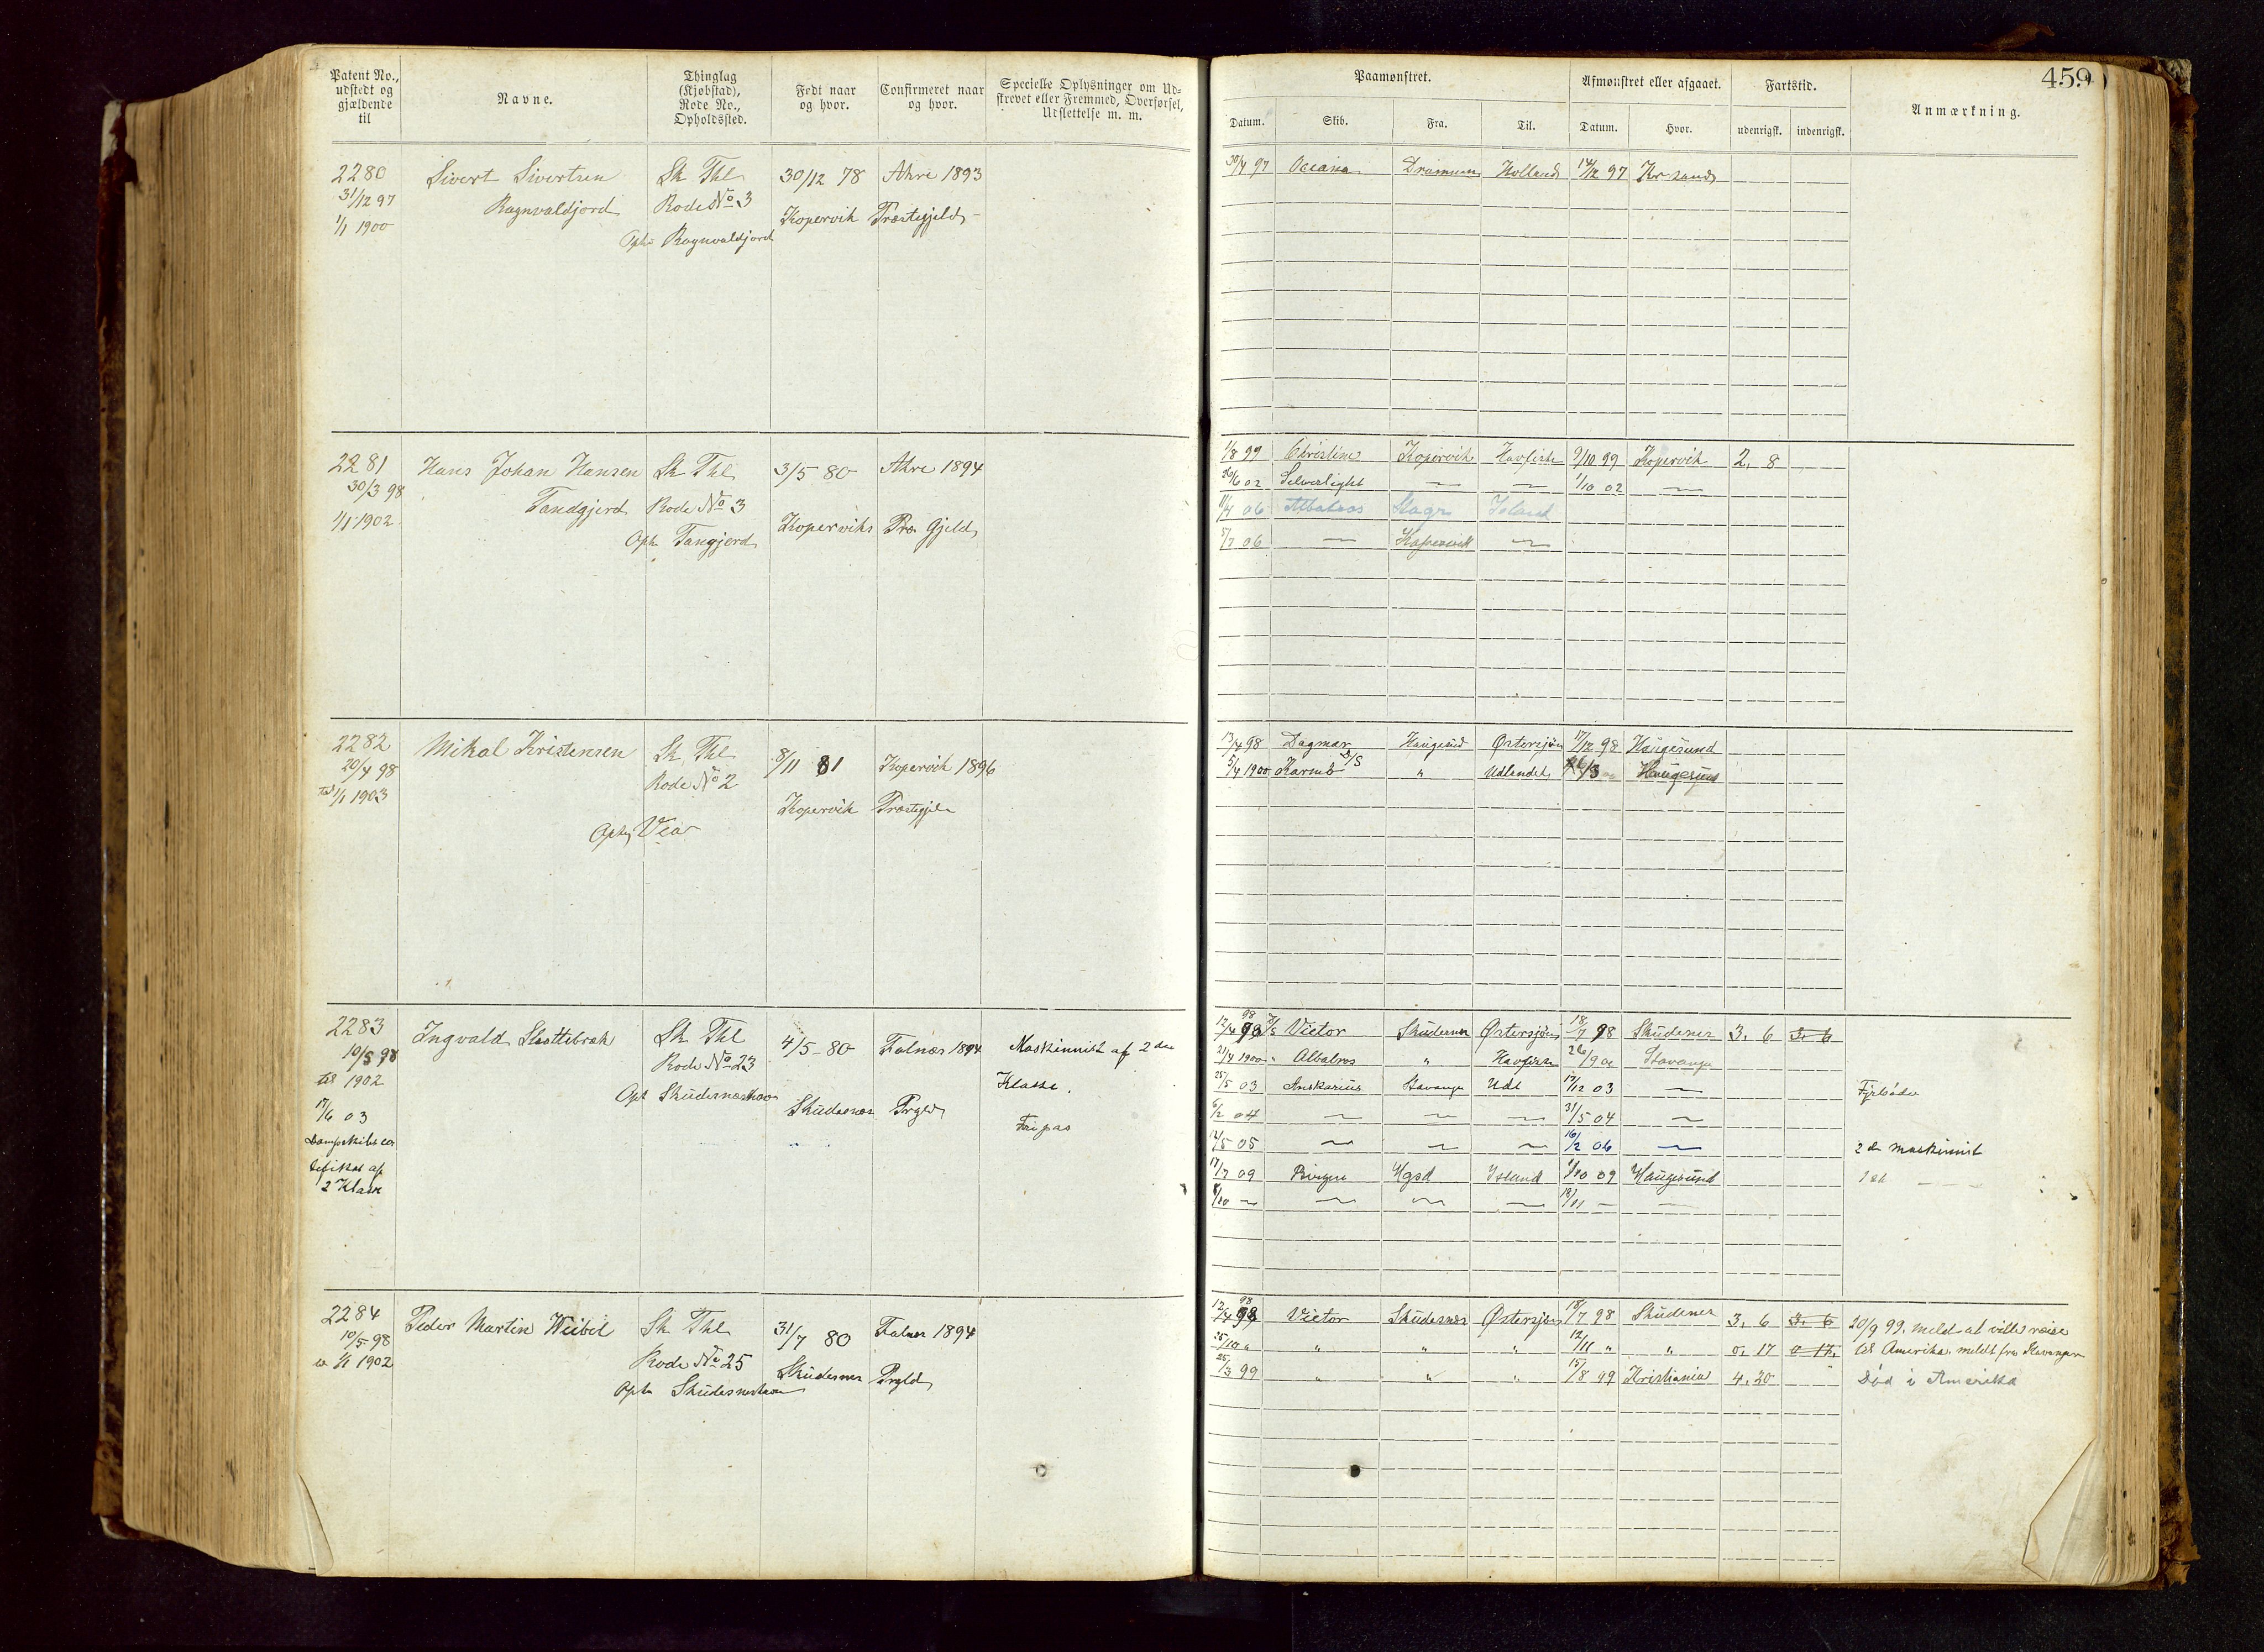 Patent No., udstedt og gjældende til
Navne.
Thinglag (Kjøbstad), Rode No., Opholdssted.
Født naar og hvor.
Confirmeret naar og hvor.
Specielle Oplysninger om Udskrevet eller Fremmed, Overførsel, Udslettelse m. m.
Paamønstret.
Afmønstret eller afgaaet.
Fartstid.
Anmærkning.
459
Datum. Skib. Fra. Til. Datum. Hvor. udenrigsk. indenrigsk.
2280 Sivert Sivertsen Sk Thl 30/12 78 Akre 1893
31/12 97 Ragnvaldjord Rode No 3 Kopervik Præstegjeld
1/1 1900 Oph Ragnvaldjord
30/4 97 Oceana Drammen Holland 14/12 97 Kr sand
2281 Hans Johan Hansen Sk Thl 3/5 80 Akre 1894
30/3 98 Tandgjerd Rode No 3
1/1 1902 Koperviks Præ Gjeld
Oph Tangjerd
1/8 99 Christine Kopervik Havfiske 9/10 99 Kopervik 2, 8
20/6 02 Solverlight — — 1/10 02 —
11/4 06 Albatros Island
5/7 06 — Kopervik —
2282 Mikal Kristensen Sk Thl 8/11 81 Kopervik 1896
20/4 98 Rode No 2
til 1/1 1903 Kopervik Præstegjeld
Oph Vea
13/4 98 Dagmar Haugesund Østersjøen 17/12 98 Haugesund
5/4 1900 Karmt D/S " Udlandet Haugesund
2283 Ingvald Slottebrak Sk Thl 4/5 80 Falnæs 1894 Maskinnist af 2den
10/5 98 Rode No 23 Klasse.
til 1902 Oph Skudesneshavn Skudesnæs Prgld
17/6 03 Fripas
Dampskibs cer
tifikat af
2 Klasse
12/4 98 D/S Victor Skudesnes Østersjøen 18/7 98 Skudenes 3, 6 3. 6
21/4 1900 " Albatros " Havfiske 26/9 00 Stavanger
25/5 03 Anskarius Stavanger Udl 17/12 03 — Fyrbøder
6/2 04 — — — 31/5 04 —
12/5 05 — — — 16/2 06 — 2den maskinnist
17/7 09 Hgsd Island 1/10 09 Haugesund 1ste — — —
8/10 — — — — 19/11 — —
2284 Peder Martin Weibel Sk Thl 31/7 80 Falnes 1894
10/5 98 Rode No 25 Skudesnes Prgld
til 1/1 1902 Oph Skudesneshavn
12/4 98 Victor Skudesnes Østersjøen 18/7 98 Skudenes 3. 6 3. 6 20/9 99. meldt at ville reise
25/10 " " " " 12/11 " " 0. 17 0 17. til Amerika, meldt fra Stavanger
25/3 99 " " " 15/8 99 Kristiania 4. 20 Død i Amerika